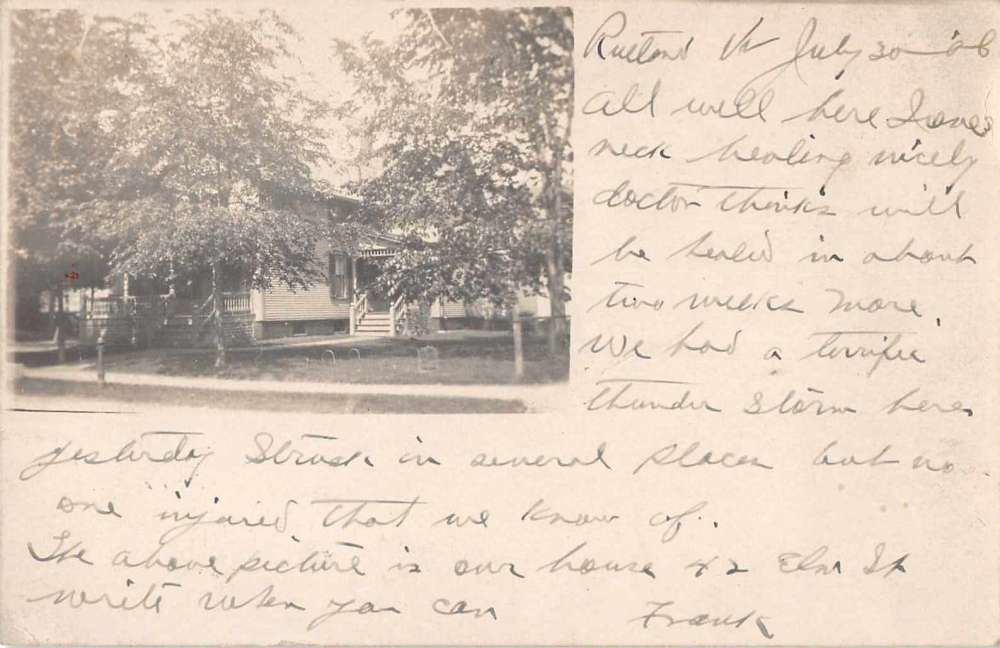 Rutland Vt July 30 - 06
All well here Irones
neck healing nicely
doctor thinks will
be healed in about
two weeks more.
We had a terrific
thunder storm here
yesterday Struck in several places but no
one injured that we know of.
The above picture is our house 42 Elm St
write when you can Frank